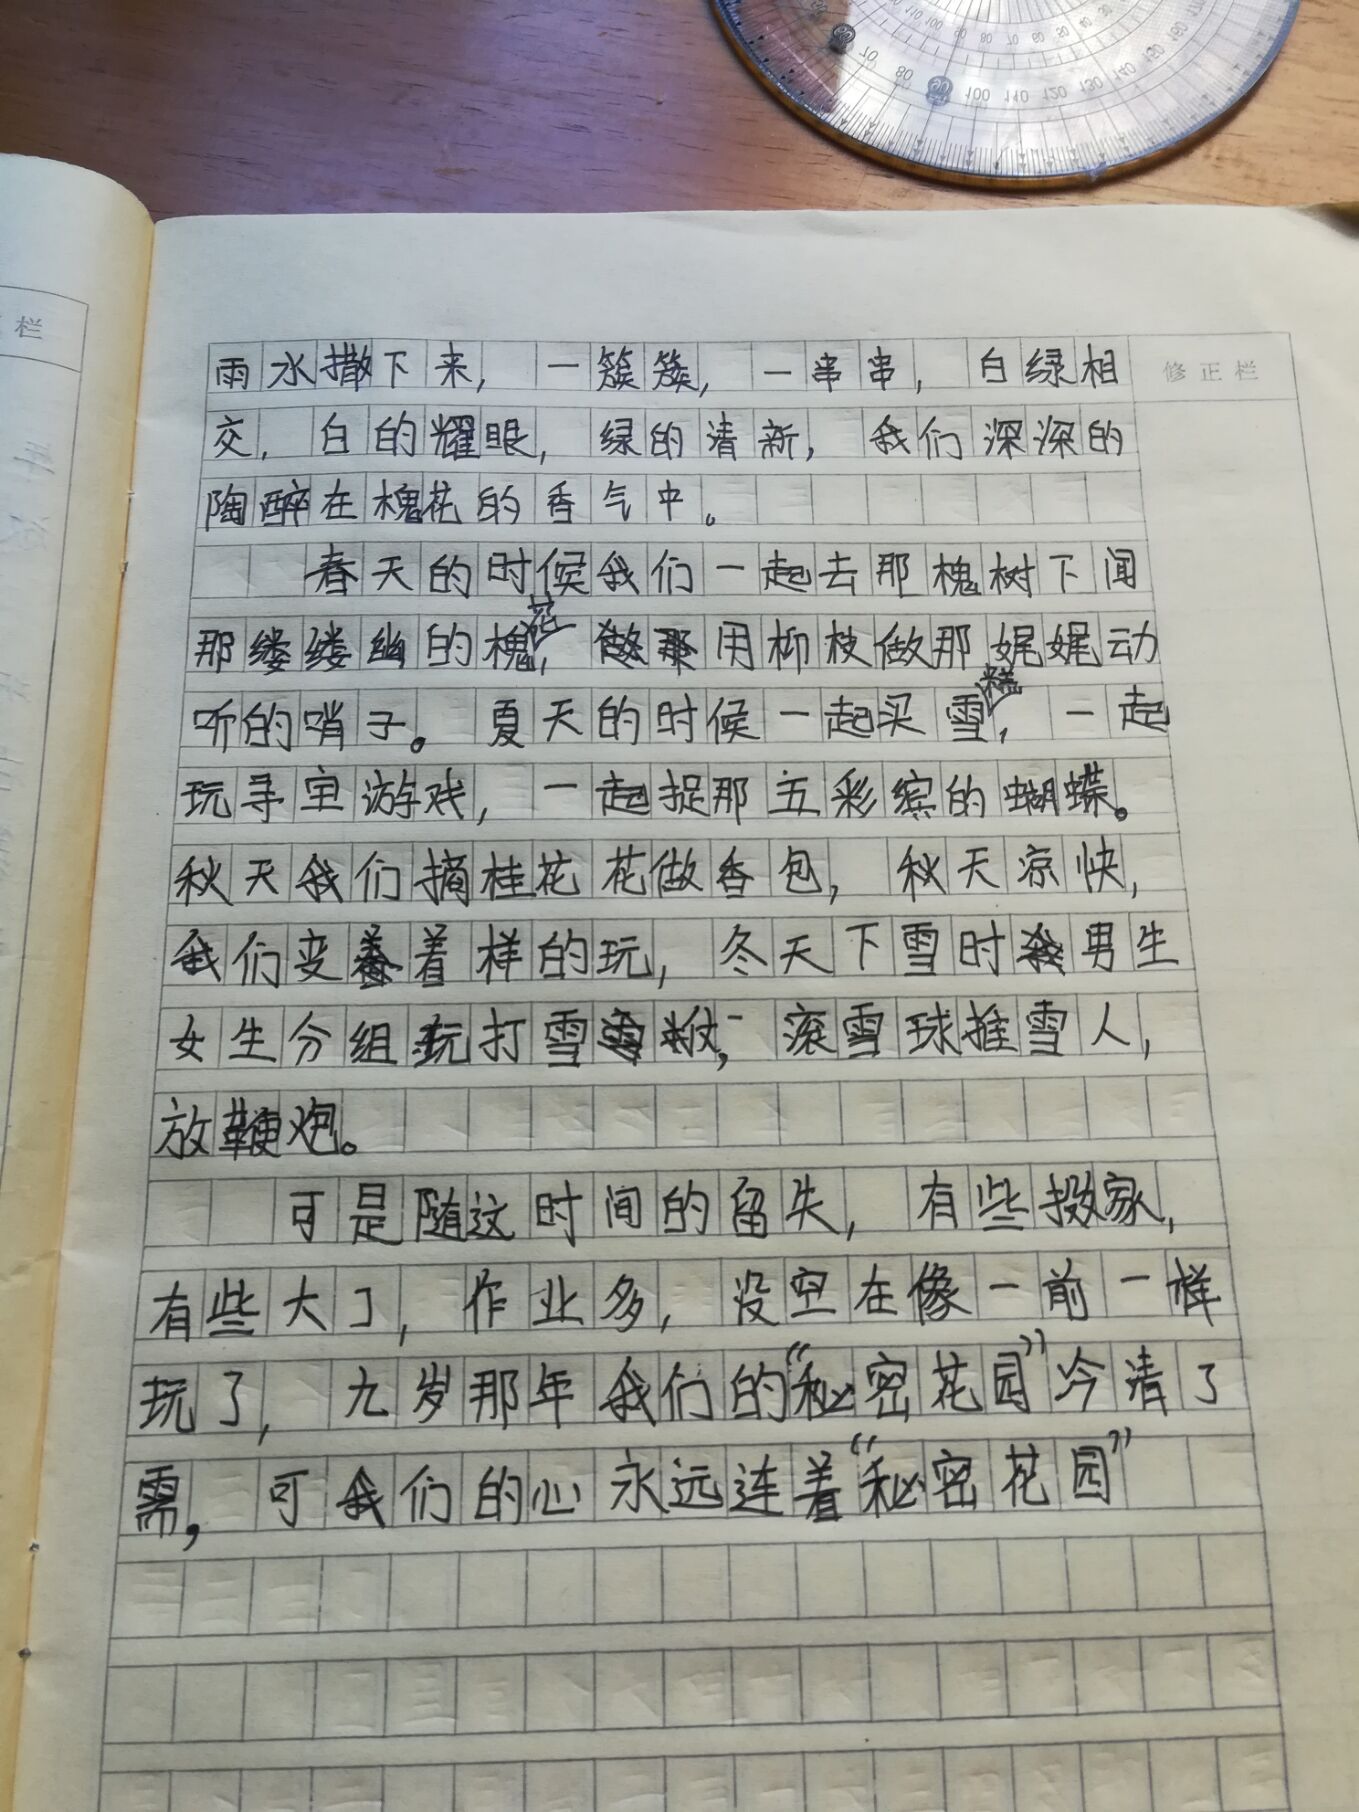 栏
修正栏
雨水撒下来，一簇簇，一串串，白绿相
交，白的耀眼，绿的清新，我们深深的
陶醉在槐花的香气中。
春天的时候我们一起去那槐树下闻
那缕缕幽的槐花，用柳枝做那娓娓动
听的哨子。夏天的时候一起买雪糕，一起
玩寻宝游戏，一起捉那五彩缤的蝴蝶。
秋天我们摘桂花花做香包，秋天凉快，
我们变着样的玩，冬天下雪时男生
女生分组玩打雪仗，滚雪球推雪人，
放鞭炮。
可是随这时间的留失，有些搬家，
有些大了，作业多，没空在像一前一样
玩了，九岁那年我们的“秘密花园”今清了
需，可我们的心永远连着“秘密花园”
70 80 90 100 110 120 130 140 150 160